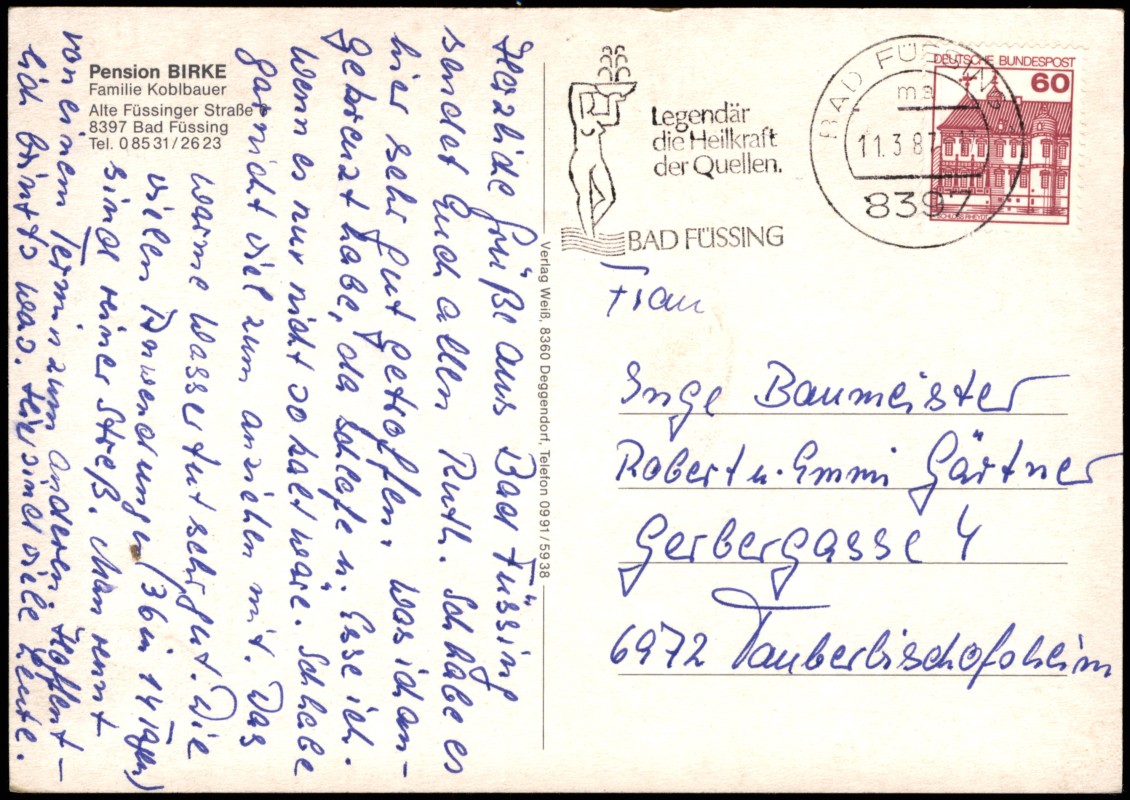 Pension BIRKE
Familie Koblbauer
Alte Füssinger Straße
8397 Bad Füssing
Tel. 0 85 31 / 26 23
Herzliche Grüße aus Bad Füssing
sendet Euch allen Ruth. Ich habe es
hier sehr gut getroffen. Was ich an-
gekreuzt habe, da schlafe u. esse ich.
Wenn es nur nicht so kalt wäre. Ich habe
garnicht viel zum anziehen mit. Das
warme Wasser tut sehr gut. Die
vielen Anwendungen (36 in 14 Tagen)
sind reiner Streß. Man rennt
von einem Termin zum anderen. Hoffent-
lich was. Hier sind viele Leute.
Verlag Weiß, 8360 Deggendorf, Telefon 0991/5938
Legendär
die Heilkraft
der Quellen.
BAD FÜSSING
BAD FÜSSING
ma
11.3.87
8397
DEUTSCHE BUNDESPOST
60
Frau
Inge Baumeister
Robert u. Emmi Gärtner
Gerbergasse 4
6972 Tauberbischofsheim